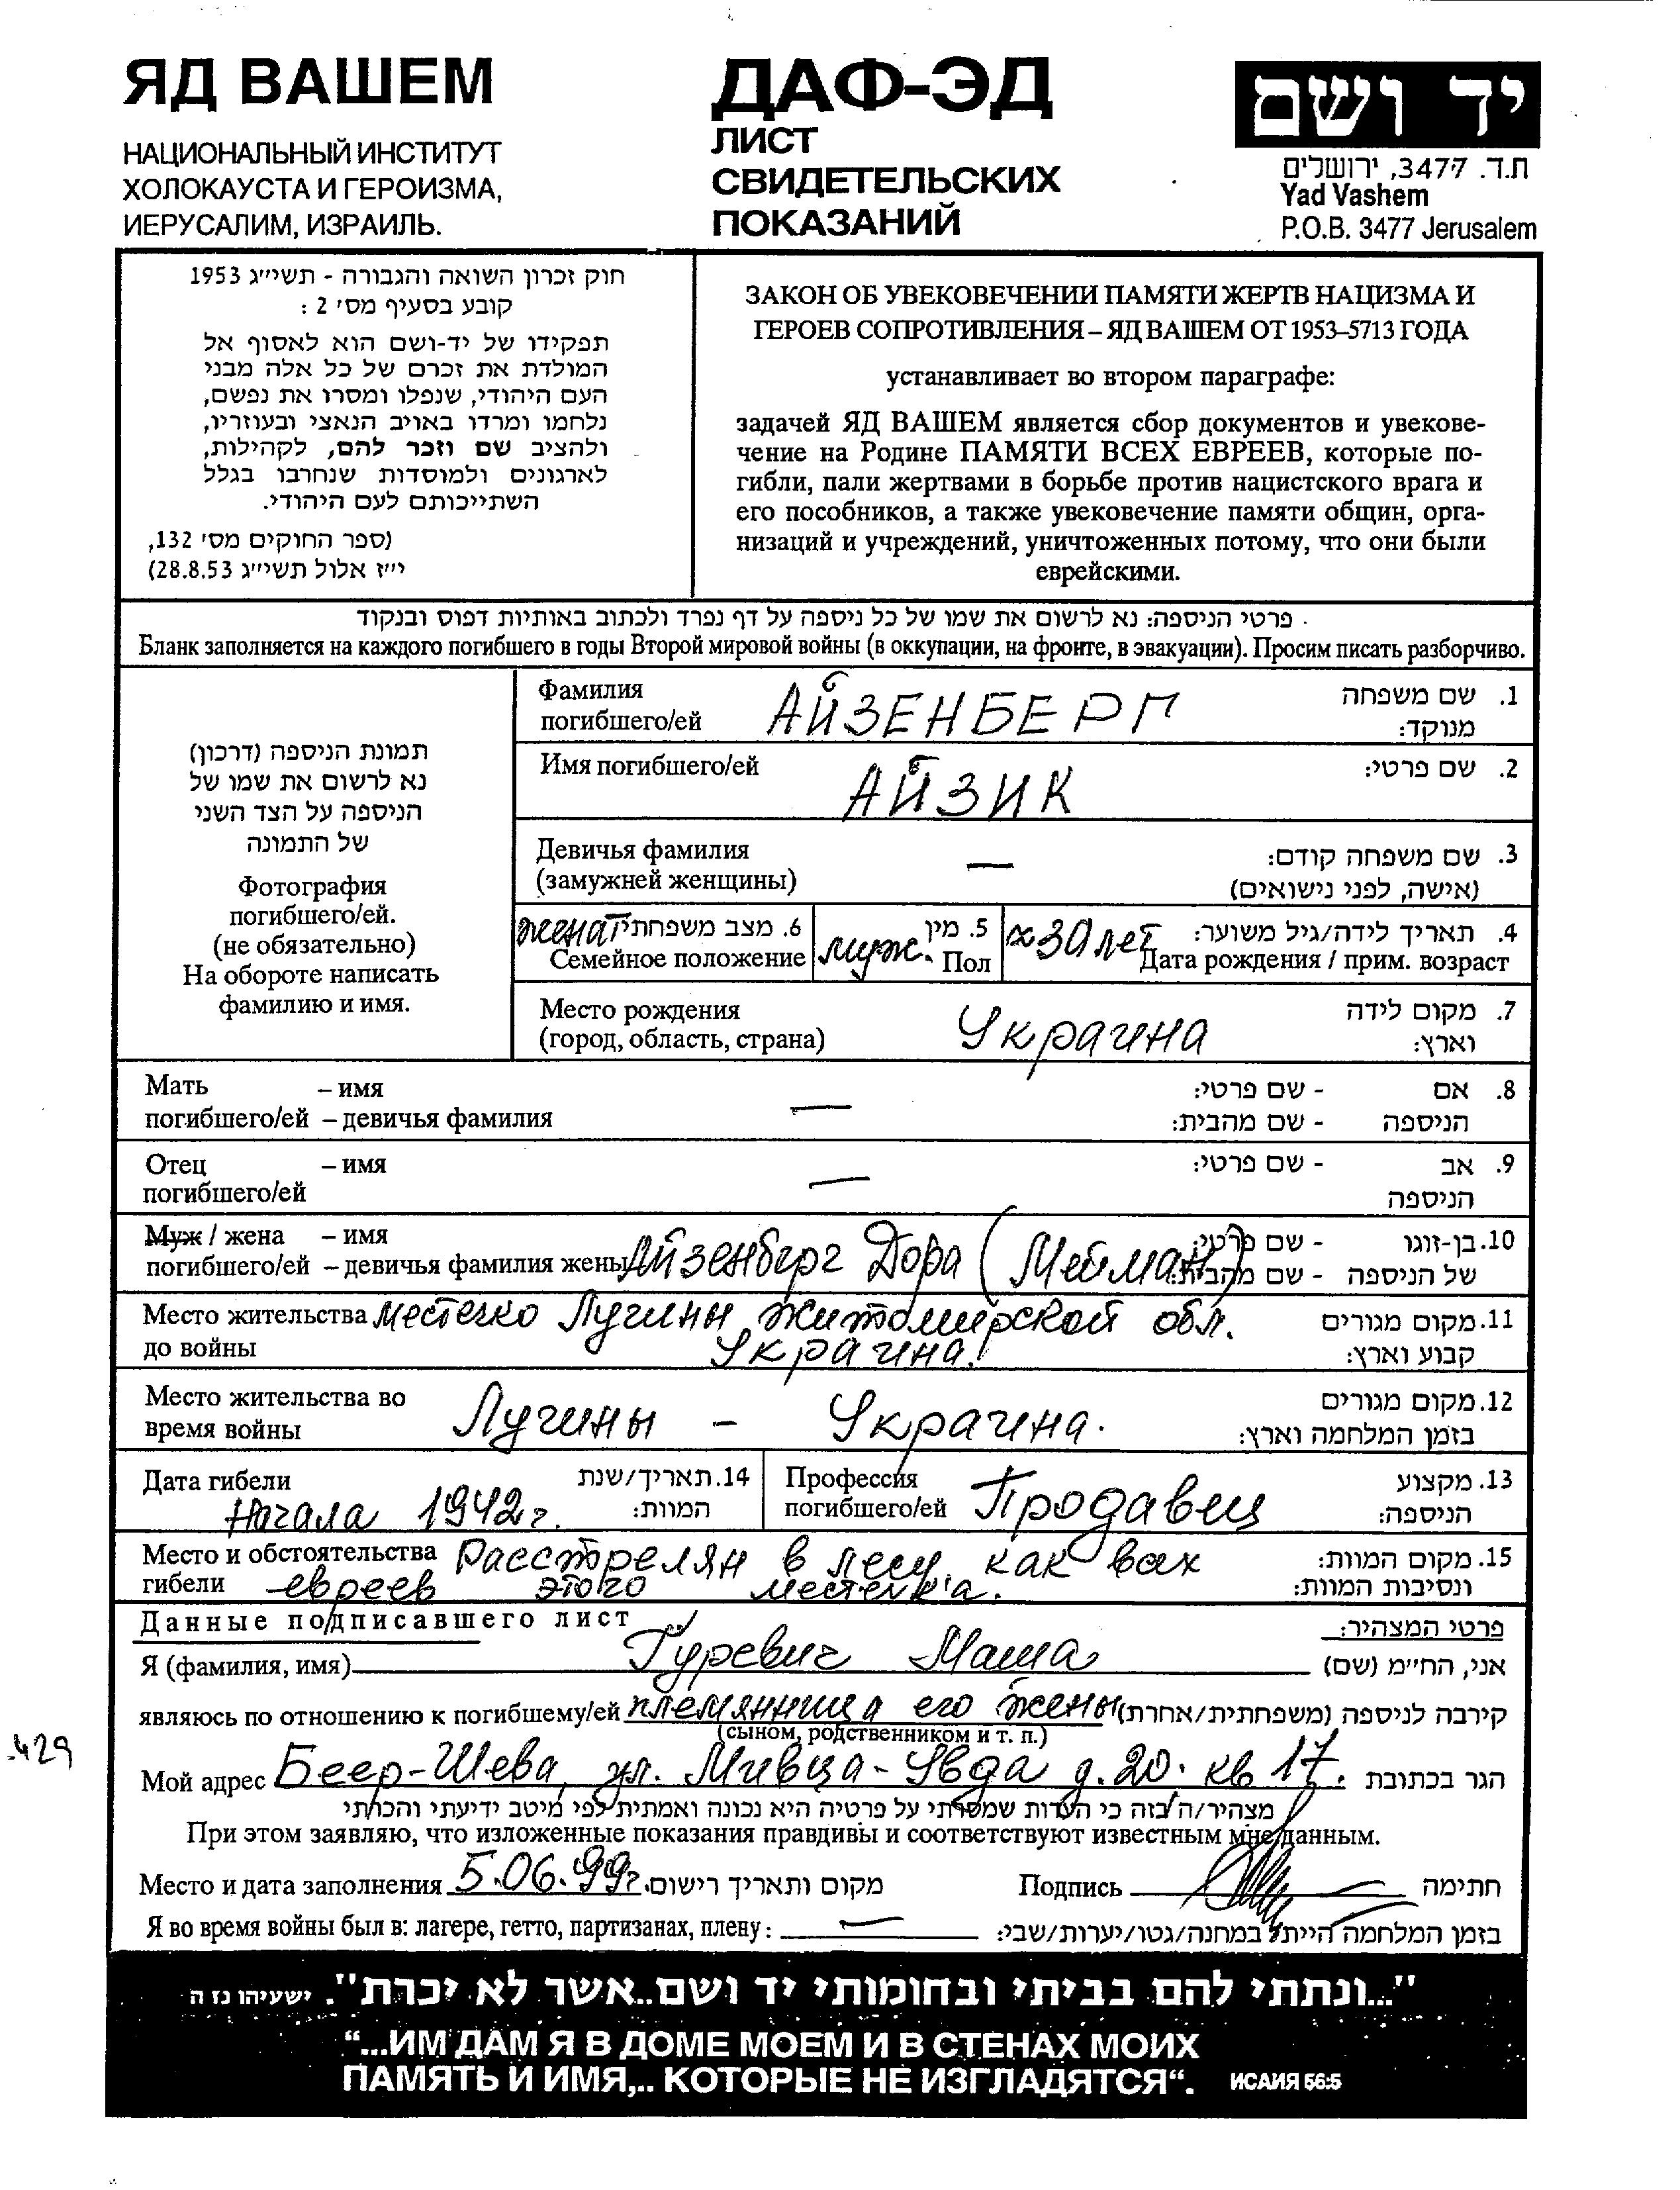 ЯД ВАШЕМ
НАЦИОНАЛЬНЫЙ ИНСТИТУТ
ХОЛОКАУСТА И ГЕРОИЗМА,
ИЕРУСАЛИМ, ИЗРАИЛЬ.
ДАФ-ЭД
ЛИСТ
СВИДЕТЕЛЬСКИХ
ПОКАЗАНИЙ
יד ושם
ת.ד. 3477, ירושלים
Yad Vashem
P.O.B. 3477 Jerusalem
חוק זכרון השואה והגבורה - תשי"ג 1953
קובע בסעיף מס' 2 :
תפקידו של יד-ושם הוא לאסוף אל
המולדת את זכרם של כל אלה מבני
העם היהודי, שנפלו ומסרו את נפשם,
נלחמו ומרדו באויב הנאצי ובעוזריו,
ולהציב שם וזכר להם, לקהילות,
לארגונים ולמוסדות שנחרבו בגלל
השתייכותם לעם היהודי.
(ספר החוקים מס' 132,
י"ז אלול תשי"ג 28.8.53)
ЗАКОН ОБ УВЕКОВЕЧЕНИИ ПАМЯТИ ЖЕРТВ НАЦИЗМА И
ГЕРОЕВ СОПРОТИВЛЕНИЯ – ЯД ВАШЕМ ОТ 1953–5713 ГОДА
устанавливает во втором параграфе:
задачей ЯД ВАШЕМ является сбор документов и увекове-
чение на Родине ПАМЯТИ ВСЕХ ЕВРЕЕВ, которые по-
гибли, пали жертвами в борьбе против нацистского врага и
его пособников, а также увековечение памяти общин, орга-
низаций и учреждений, уничтоженных потому, что они были
еврейскими.
פרטי הניספה: נא לרשום את שמו של כל ניספה על דף נפרד ולכתוב באותיות דפוס ובנקוד
Бланк заполняется на каждого погибшего в годы Второй мировой войны (в оккупации, на фронте, в эвакуации). Просим писать разборчиво.
תמונת הניספה (דרכון)
נא לרשום את שמו של
הניספה על הצד השני
של התמונה
Фотография
погибшего/ей.
(не обязательно)
На обороте написать
фамилию и имя.
Фамилия АЙЗЕНБЕРГ 1. שם משפחה
погибшего/ей מנוקד:
Имя погибшего/ей АЙЗИК 2. שם פרטי:
Девичья фамилия — 3. שם משפחה קודם:
(замужней женщины) (אישה, לפני נישואים)
женат 6. מצב משפחתי муж. 5. מין ≈30 лет 4. תאריך לידה/גיל משוער:
Семейное положение Пол Дата рождения / прим. возраст
Место рождения Украина 7. מקום לידה
(город, область, страна) וארץ:
Мать – имя — - שם פרטי: 8. אם
погибшего/ей – девичья фамилия - שם מהבית: הניספה
Отец – имя — - שם פרטי: 9. אב
погибшего/ей הניספה
Муж / жена – имя - שם פרטי: 10. בן-זוגו
погибшего/ей – девичья фамилия жены Айзенберг Дора (Мейман) - שם מהבית: של הניספה
Место жительства местечко Лугины Житомирской обл. 11. מקום מגורים
до войны Украина. קבוע וארץ:
Место жительства во Лугины – Украина. 12. מקום מגורים
время войны בזמן המלחמה וארץ:
Дата гибели 14. תאריך/שנת Профессия Продавец 13. מקצוע
Начала 1942г. המוות: погибшего/ей הניספה:
Место и обстоятельства Расстрелян в лесу, как всех 15. מקום המוות:
гибели евреев этого местечка. ונסיבות המוות:
Данные подписавшего лист פרטי המצהיר:
Я (фамилия, имя) Гуревич Маша אני, הח"מ (שם)
являюсь по отношению к погибшему/ей племянница его жены קירבה לניספה (משפחתית/אחרת)
(сыном, родственником и т. п.)
Мой адрес Беер-Шева, ул. Мивца-Увда д. 20. кв 17. הגר בכתובת
מצהיר/ה בזה כי העדות שמסרתי על פרטיה היא נכונה ואמתית לפי מיטב ידיעתי והכרתי
При этом заявляю, что изложенные показания правдивы и соответствуют известным мне данным.
Место и дата заполнения 5.06.99г. מקום ותאריך רישום Подпись חתימה
Я во время войны был в: лагере, гетто, партизанах, плену: — בזמן המלחמה הייתי במחנה/גטו/יערות/שבי:
429
"...ונתתי להם בביתי ובחומותי יד ושם..אשר לא יכרת". ישעיהו נז ה
“...ИМ ДАМ Я В ДОМЕ МОЕМ И В СТЕНАХ МОИХ
ПАМЯТЬ И ИМЯ,.. КОТОРЫЕ НЕ ИЗГЛАДЯТСЯ“. ИСАИЯ 56:5